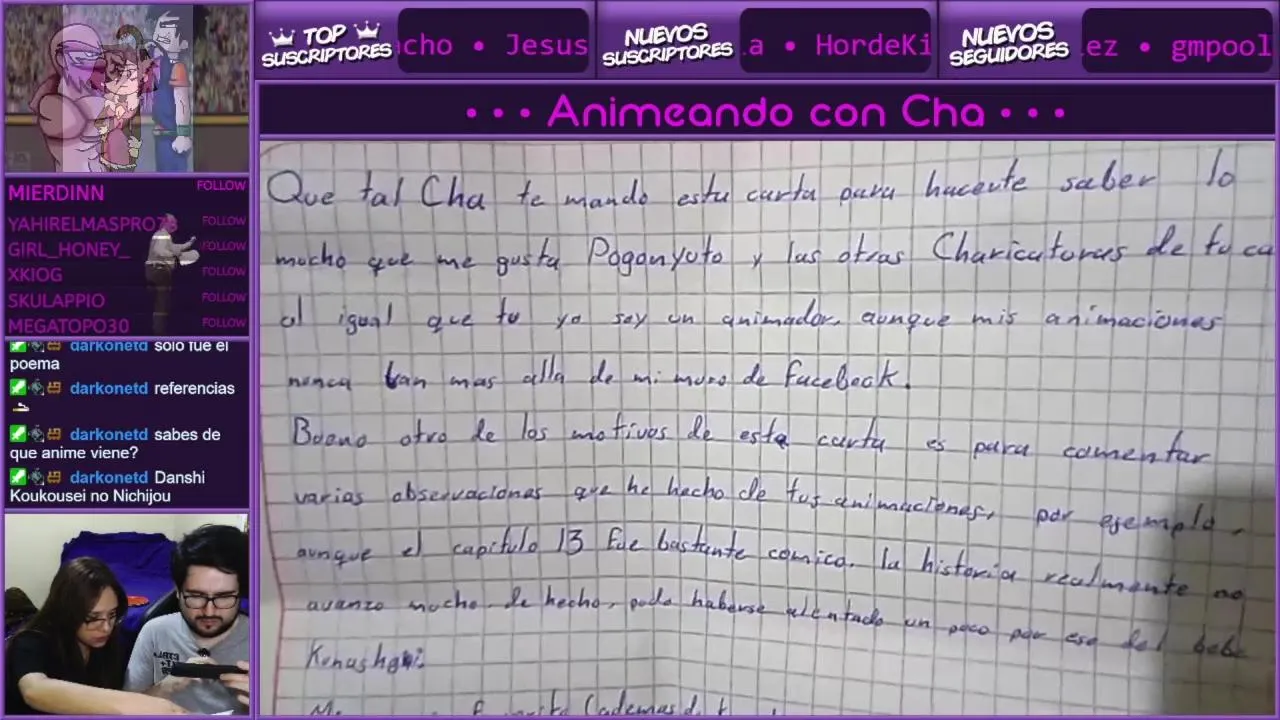 TOP SUSCRIPTORES
cho • Jesus
NUEVOS SUSCRIPTORES
a • HordeKi
NUEVOS SEGUIDORES
ez • gmpool
• • • Animeando con Cha • • •
MIERDINN FOLLOW
YAHIRELMASPRO78 FOLLOW
GIRL_HONEY_ FOLLOW
XKIOG FOLLOW
SKULAPPIO FOLLOW
MEGATOPO30 FOLLOW
darkonetd solo fue el
poema
darkonetd referencias
darkonetd sabes de
que anime viene?
darkonetd Danshi
Koukousei no Nichijou
Que tal Cha te mando esta carta para hacerte saber lo
mucho que me gusta Poganyoto y las otras Charicaturas de tu ca
al igual que tu yo soy un animador, aunque mis animaciones
nunca van mas alla de mi muro de Facebook.
Bueno otro de los motivos de esta carta es para comentar
varias observaciones que he hecho de tus animaciones, por ejemplo,
aunque el capitulo 13 fue bastante comico, la historia realmente no
avanzo mucho, de hecho, pudo haberse alentado un poco por eso del bebe
(ademas d